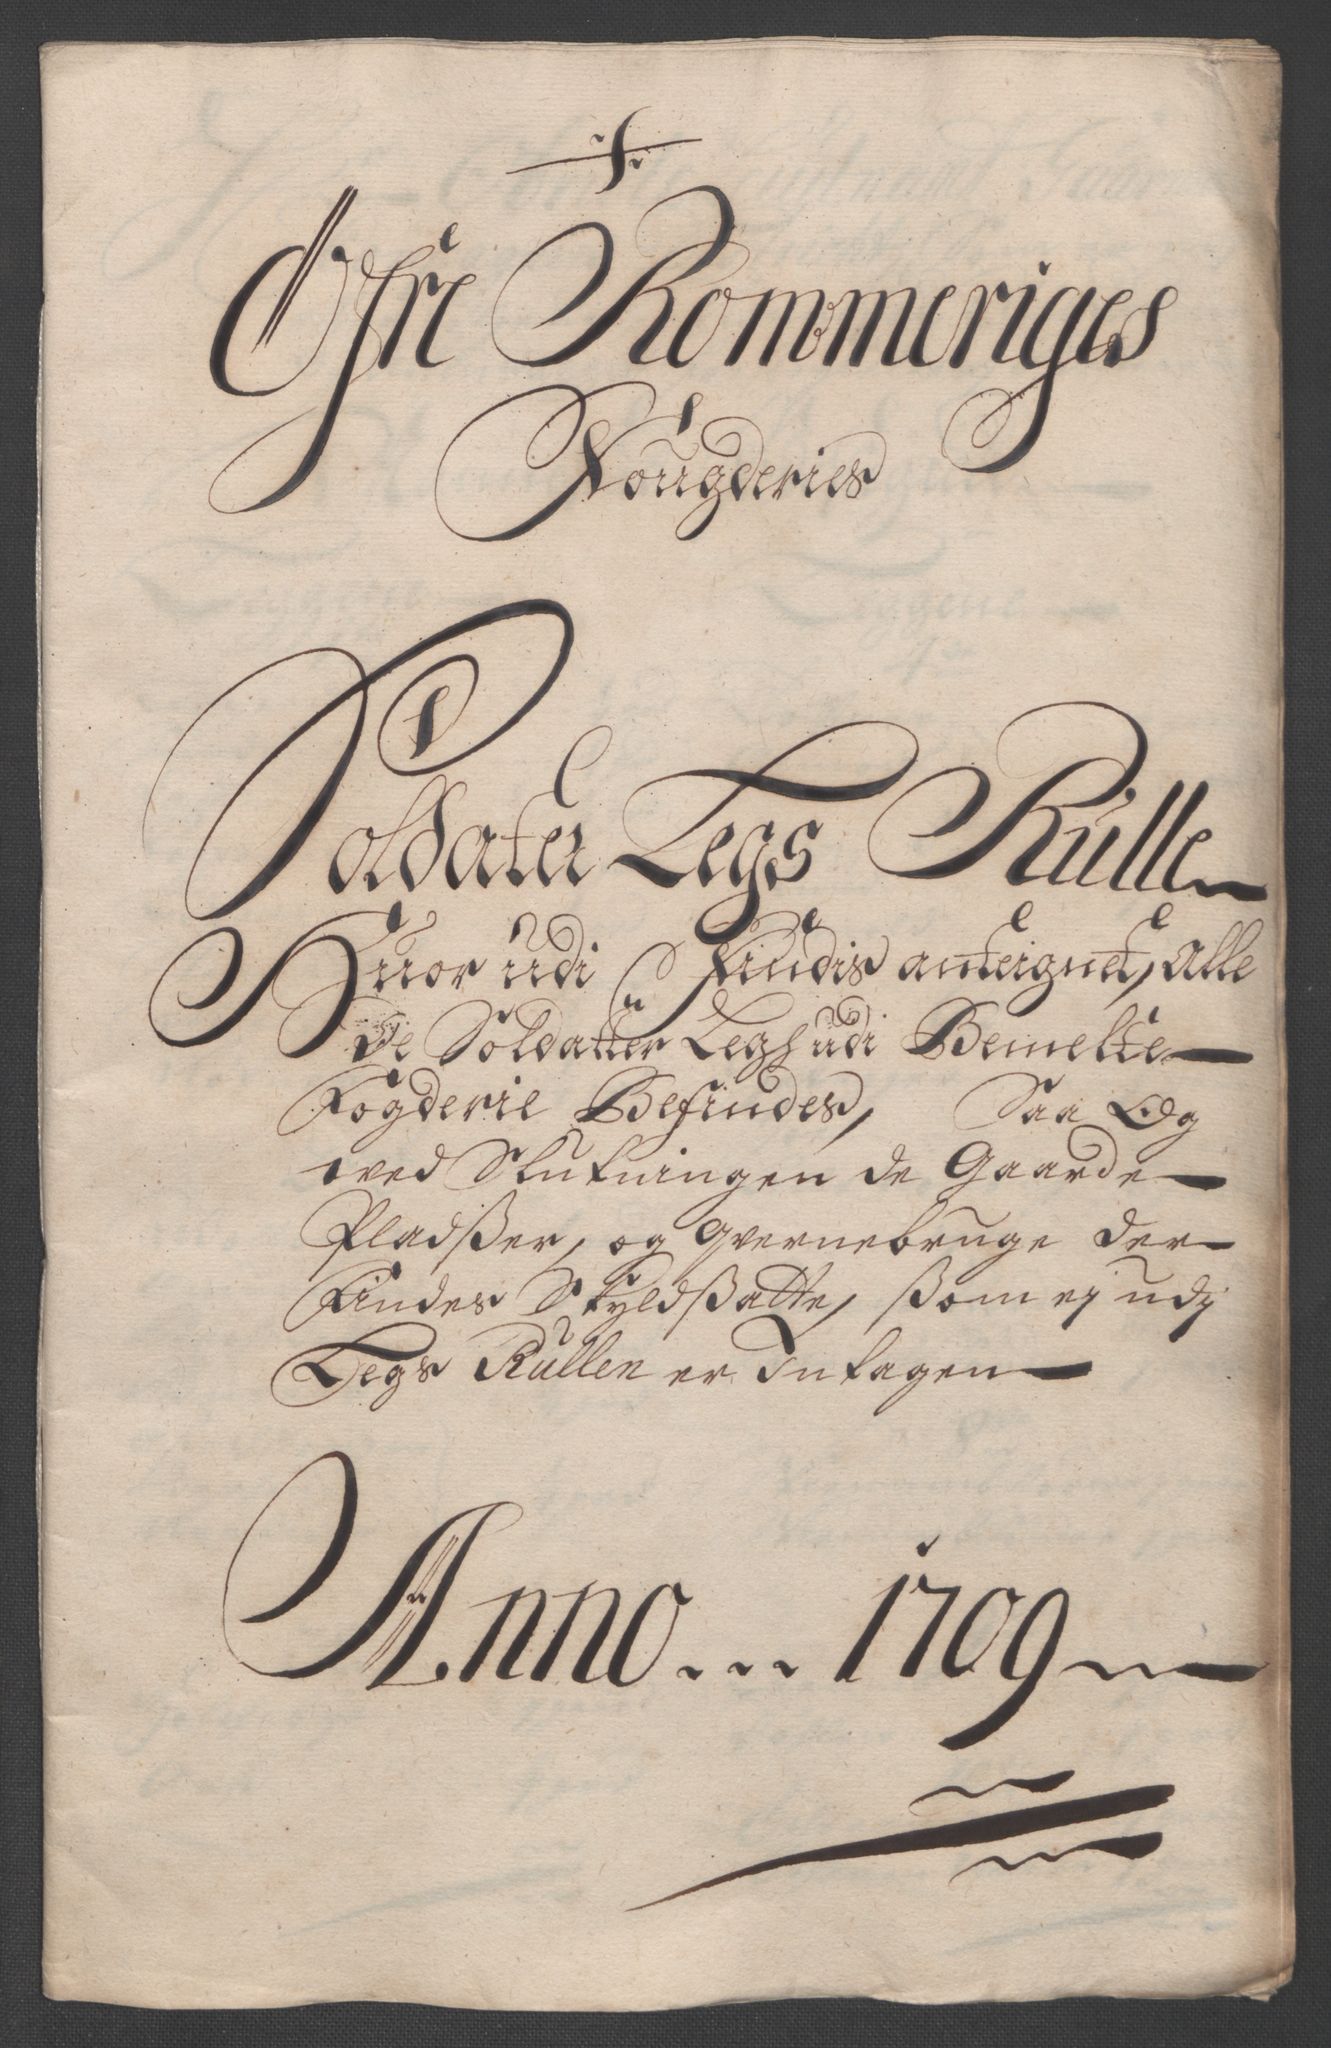 Øfre Rommeriges
Fougderies
Soldater Legs Rulle
Huor udi Findis anteignet, Alle
De Soldatter Legh udi Bemelte
Fogderie Befindes, Saa Og
ved Slutningen de Gaarde
Pladsser, og qvernebruge der
Findes Skyldsatte, ssom ej udj
Legs Rullen er Intagen
Anno ... 1709